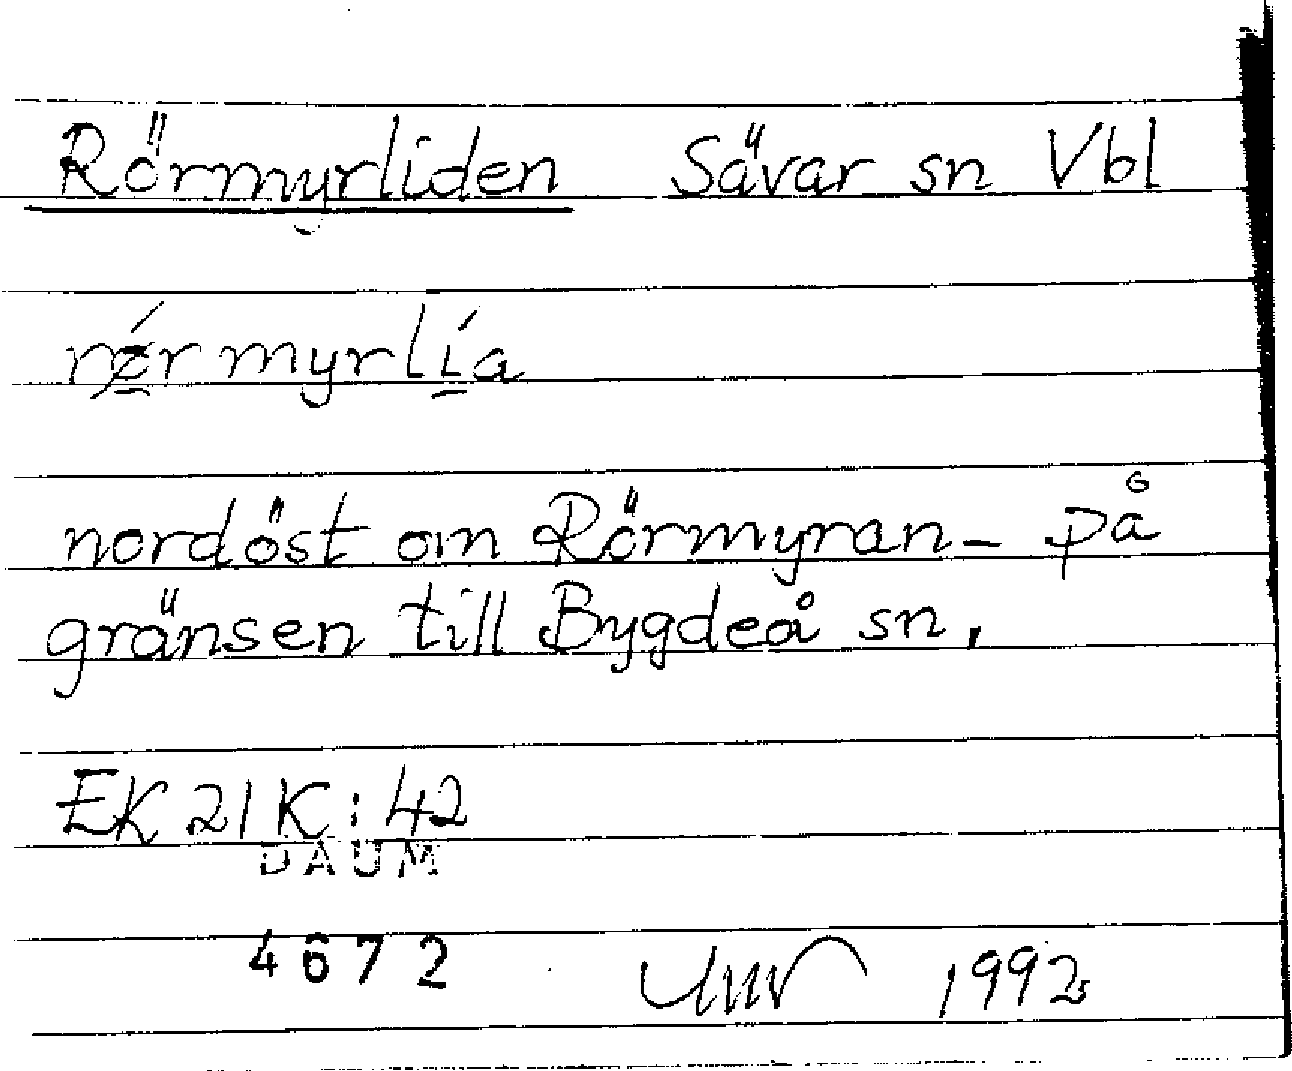 Rörmyrliden Sävar sn Vbl
myrlía
nordöst om Rörmyran - på
gränsen till Bygdeå sn.
EK 21 K : 42
DAUM
4672 1992